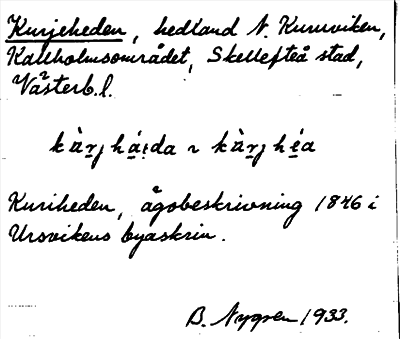 Kurjeheden, hedland N. Kuruviken,
Kallholmsområdet, Skellefteå stad,
Västerb.l.
kùrj hái̯da ~ kùrj héa
Kuriheden, ägobeskrivning 1846 i
Ursvikens byaskrin.
B. Nygren 1933.